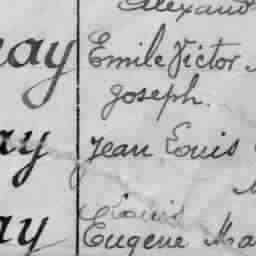 ay Emile Victor
Joseph.
ay Jean Louis
Louis
ay Eugene Ma